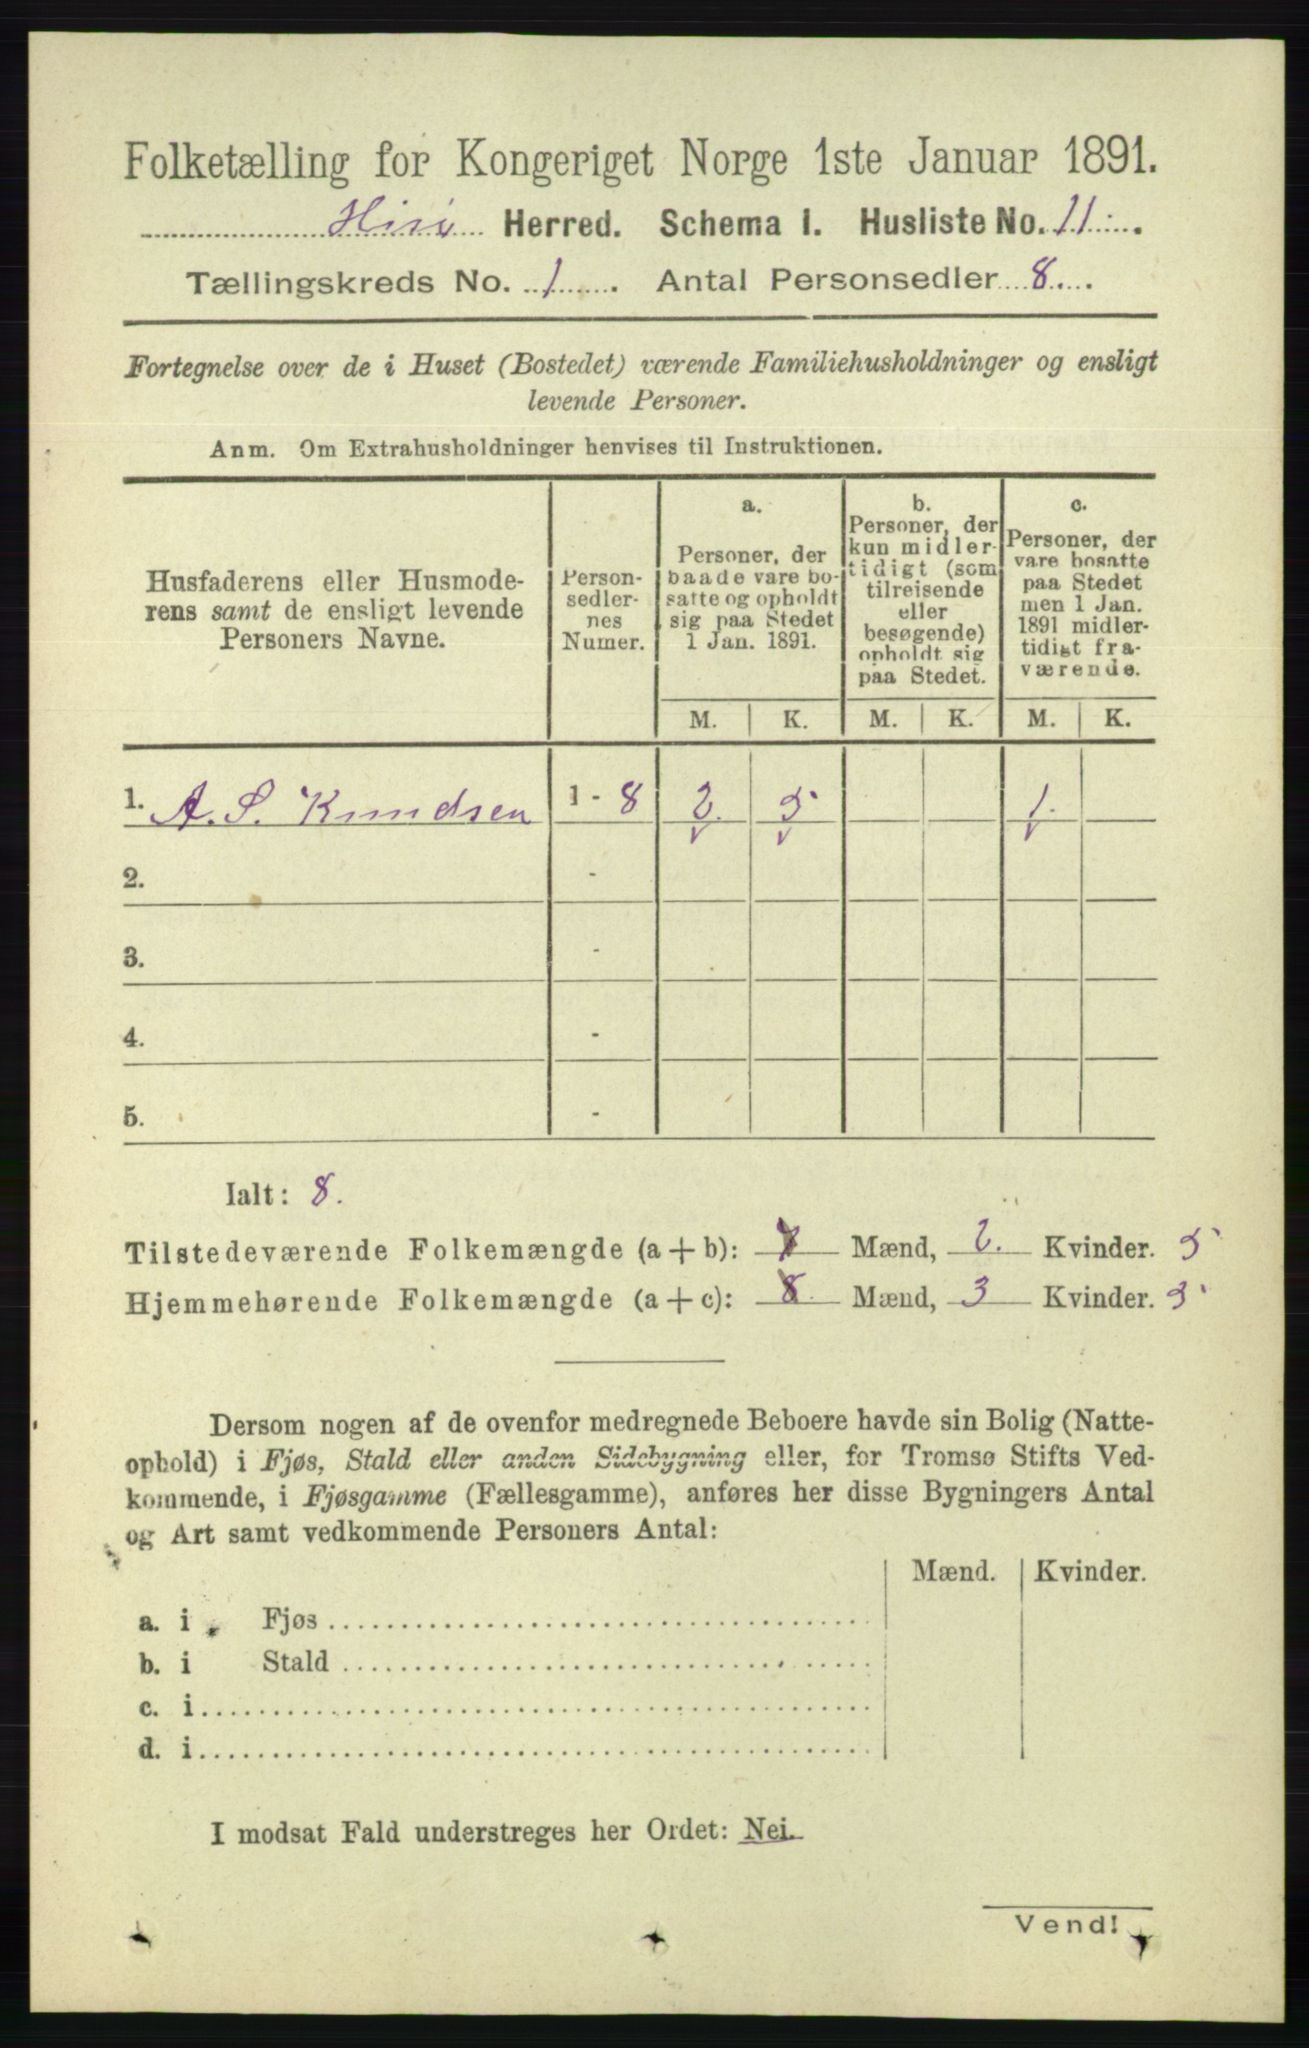 Folketælling for Kongeriget Norge 1ste Januar 1891.
Herred. Schema 1. Husliste No. 11
Tællingskreds No. 1. Antal Personsedler 8
Fortegnelse over de i Huset (Bostedet) værende Familiehusholdninger og ensligt
levende Personer.
Anm. Om Extrahusholdninger henvises til Instruktionen.
Husfaderens eller Husmode-
rens samt de ensligt levende
Personers Navne.
Person-
sedler-
nes
Numer.
a.
Personer, der
baade vare bo-
satte og opholdt
sig paa Stedet
1 Jan. 1891.
b.
Personer, der
kun midler-
tidigt (som
tilreisende
eller
besøgende)
opholdt sig
paa Stedet.
c.
Personer, der
vare bosatte
paa Stedet
men 1 Jan.
1891 midler-
tidigt fra-
værende.
M. K. M. K. M. K.
1. A. S. Knudsen 1 - 8 2. 5 1.
2. -
3. -
4. -
5. -
Ialt: 8.
Tilstedeværende Folkemængde (a + b): 7 Mænd, 2. Kvinder. 5
Hjemmehørende Folkemængde (a + c): 8. Mænd, 3 Kvinder. 5
Dersom nogen af de ovenfor medregnede Beboere havde sin Bolig (Natte-
ophold) i Fjøs, Stald eller anden Sidebygning eller, for Tromsø Stifts Ved-
kommende, i Fjøsgamme (Fællesgamme), anføres her disse Bygningers Antal
og Art samt vedkommende Personers Antal:
Mænd. Kvinder.
a. i Fjøs
b. i Stald
c. i
d. i
I modsat Fald understreges her Ordet: Nei.
Vend!